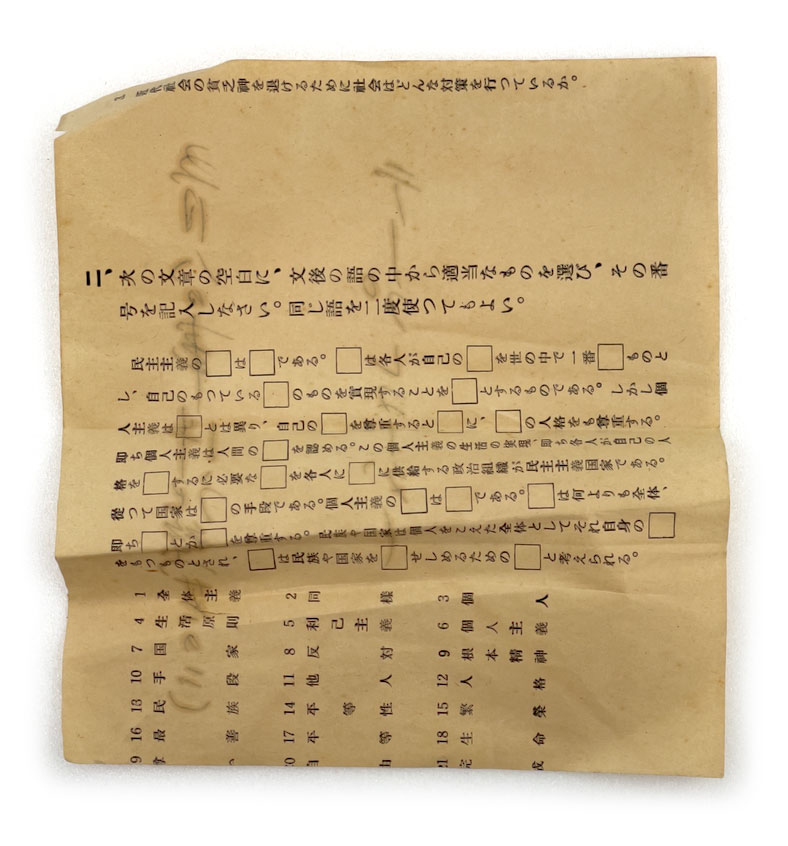 1 近代社会の貧乏神を退けるために社会はどんな対策を行つているか。
二、次の文章の空白に、文後の語の中から適当なものを選び、その番
号を記入しなさい。同じ語を二度使つてもよい。
民主主義の□は□である。□は各人が自己の□を世の中で一番□ものと
し、自己のもつている□のものを実現することを□とするものである。しかし個
人主義は□とは異り、自己の□を尊重すると□に、□の人格をも尊重する。
即ち個人主義は人間の□を認める。この個人主義の生活の実現、即ち各人が自己の人
格を□するに必要な□を各人に□に供給する政治組織が民主主義国家である。
從つて国家は□の手段である。個人主義の□は□である。□は何よりも全体、
即ち□とか□を尊重する。民族や国家は個人をこえた全体としてそれ自身の□
をもつものとされ、□は民族や国家を□せしめるための□と考えられる。
1 全体主義 2 同様 3 個人
4 生活原則 5 利己主義 6 個人主義
7 国家 8 反対 9 根本精神
10 手段 11 他人 12 人格
13 民族 14 平等性 15 繁榮
16 最善 17 平等 18 生命